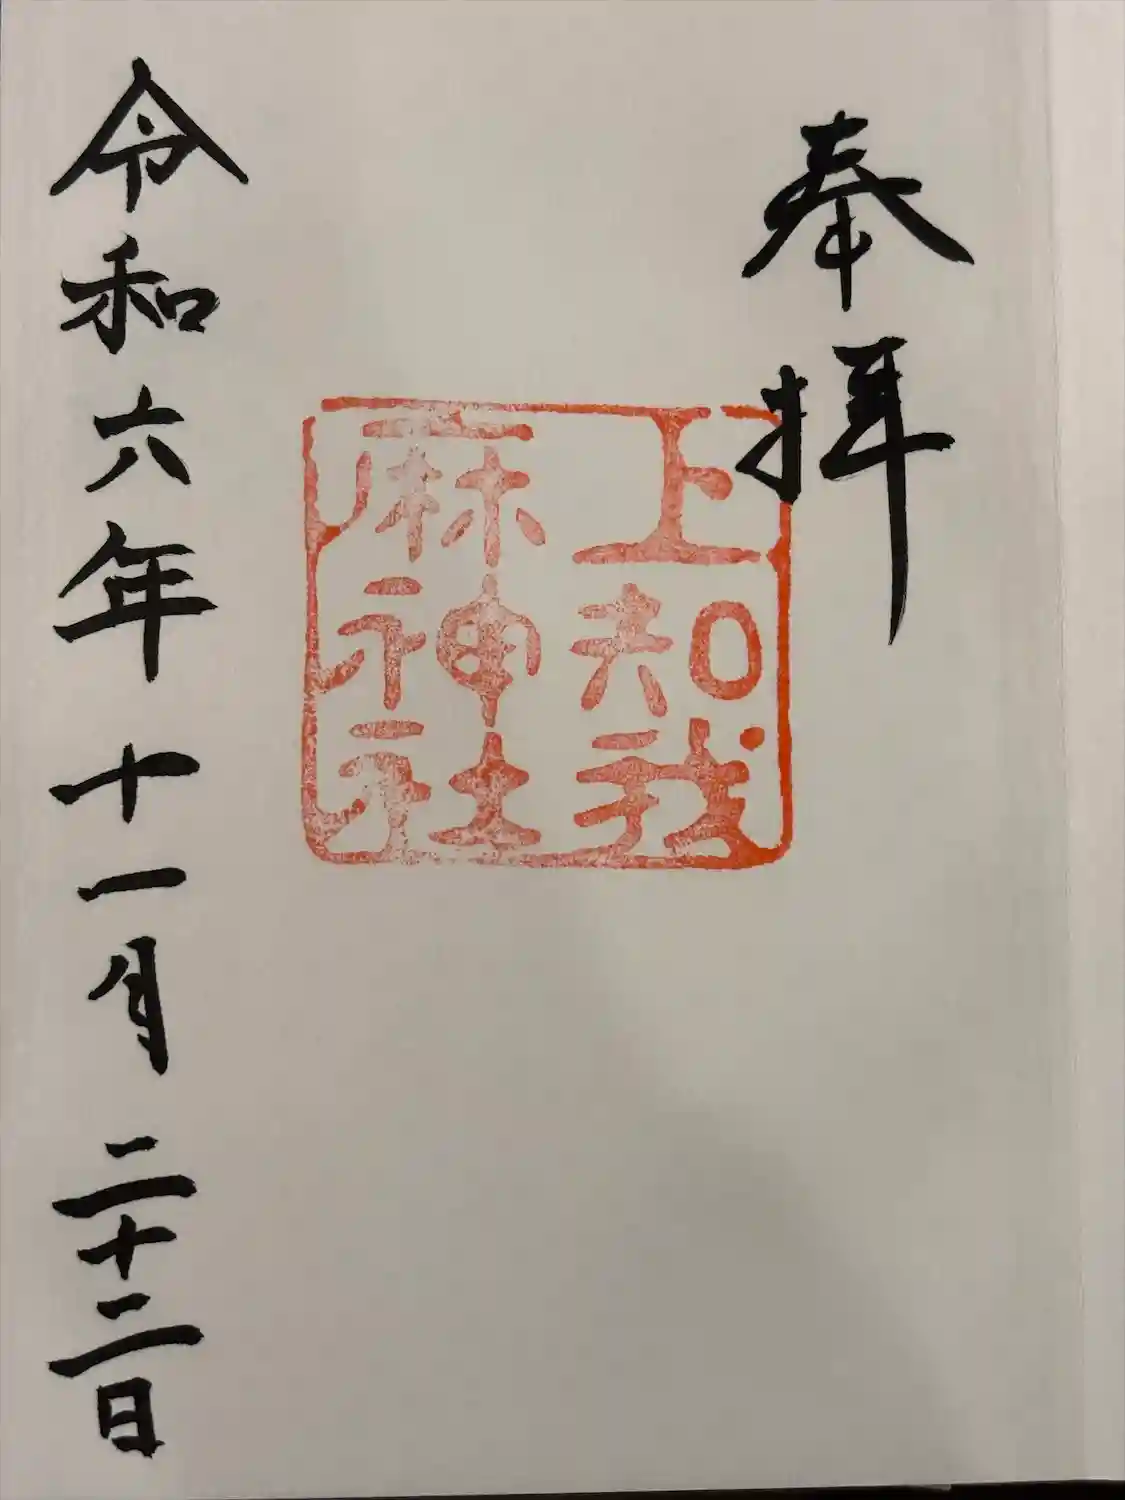 奉拝
上知我
麻神社
令和六年十一月二十二日